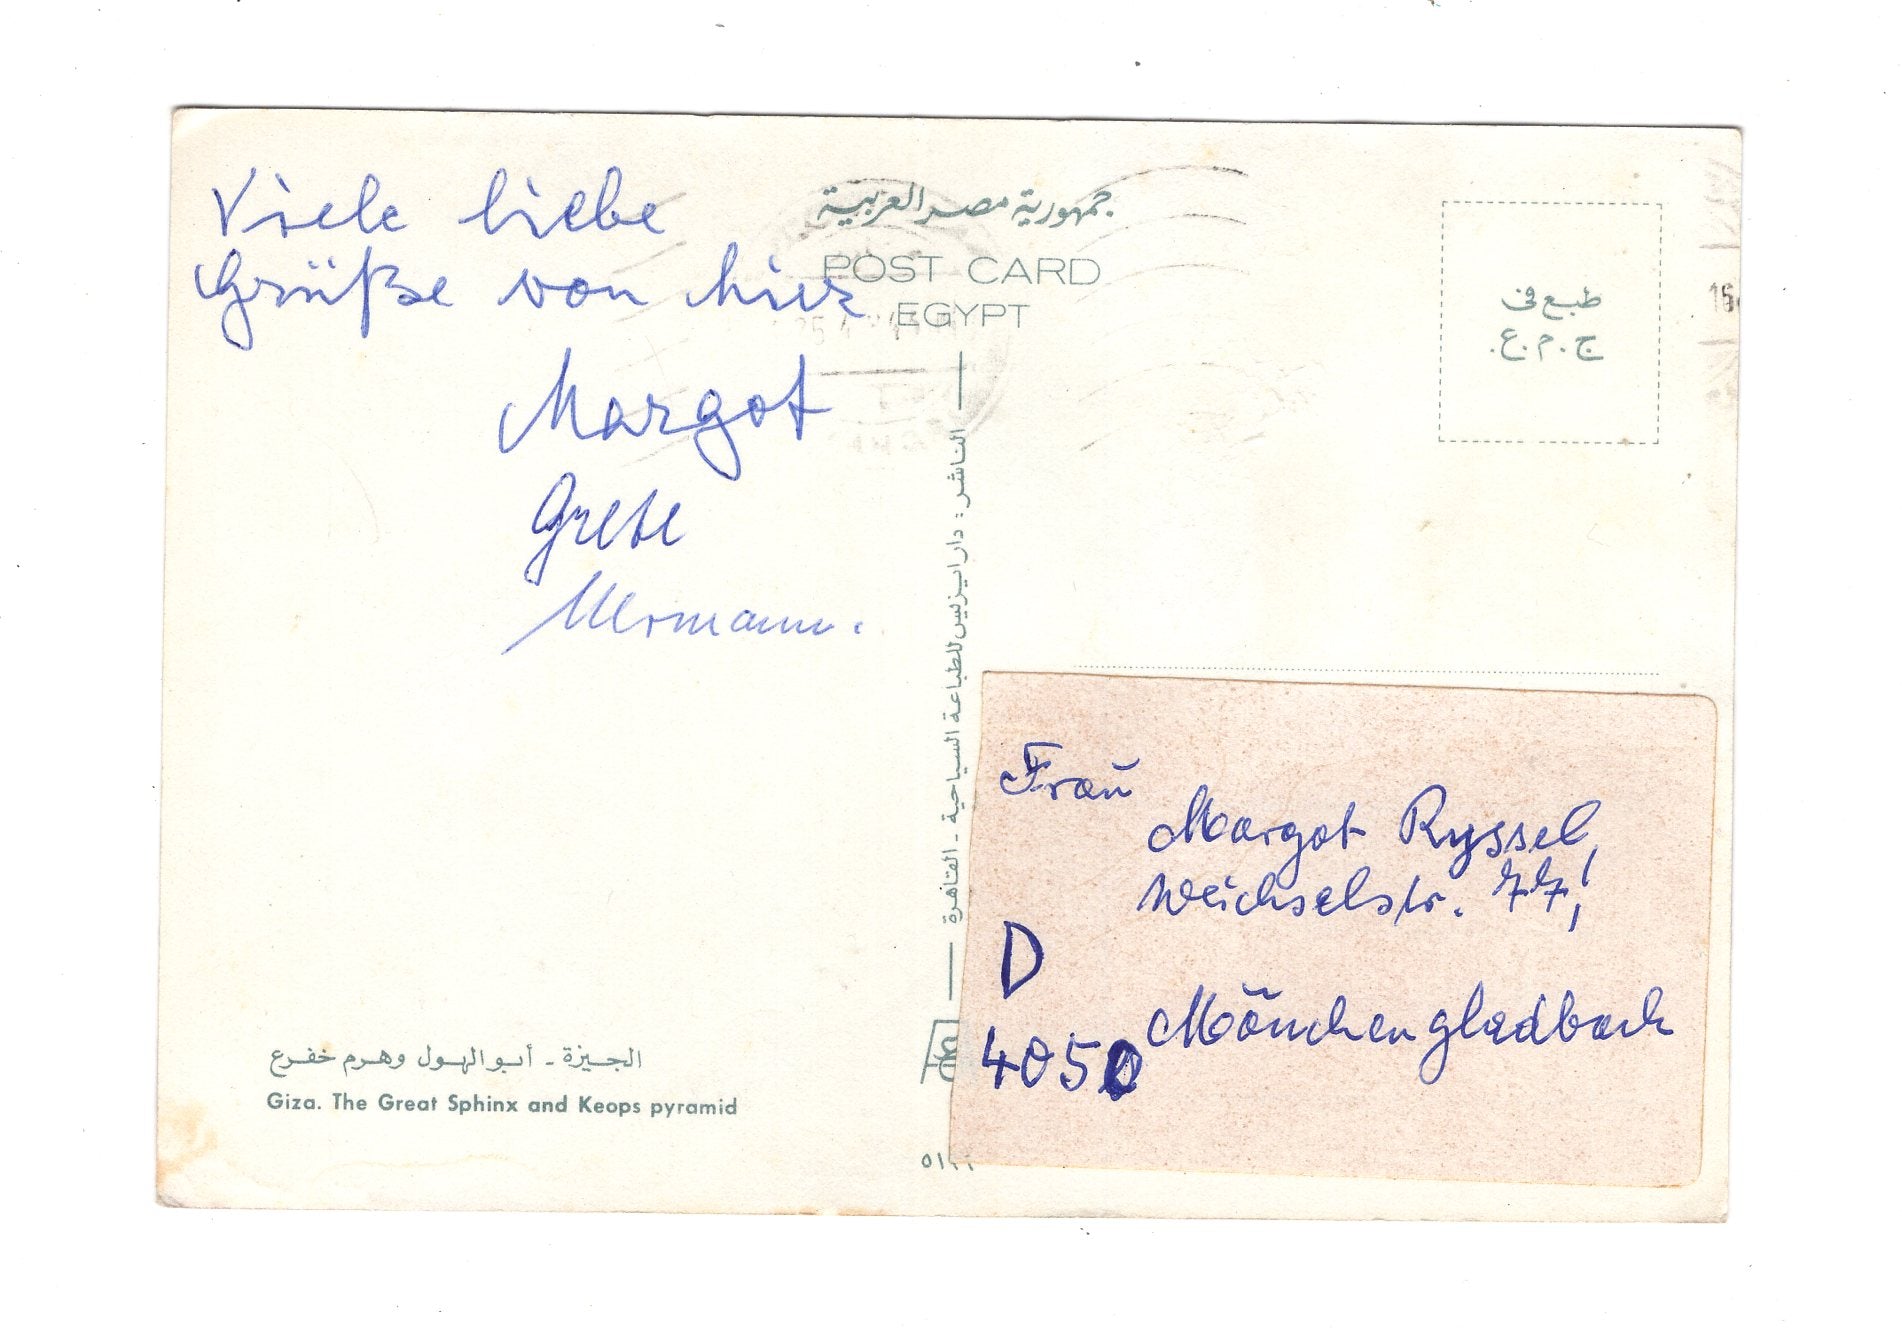 Viele liebe
Grüße von hier
Margot
Grete
جمهورية مصر العربية
POST CARD
EGYPT
طبع في
ج.م.ع.
الناشر : دار ايزيس للطباعة السياحية - القاهرة
Frau
Margot Ryssel,
Weichselstr. 77!
D
4050 Mönchengladbach
الجيزة - أبو الهول وهرم خفرع
Giza. The Great Sphinx and Keops pyramid